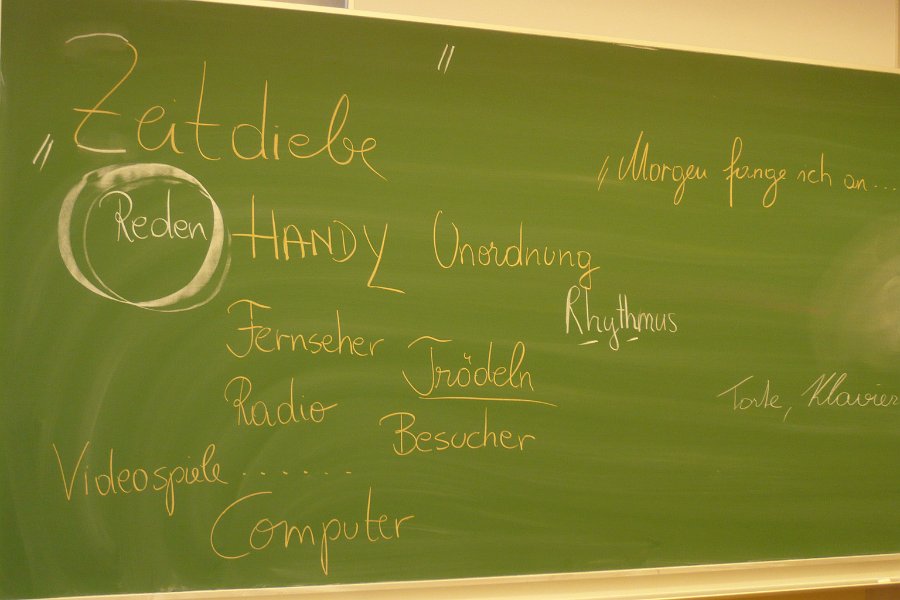 Zeitdiebe
„Morgen fange ich an...
Reden HANDY Unordnung
Rhythmus
Fernseher
Trödeln
Radio
Torte, Klavier
Besucher
Videospiele .......
Computer